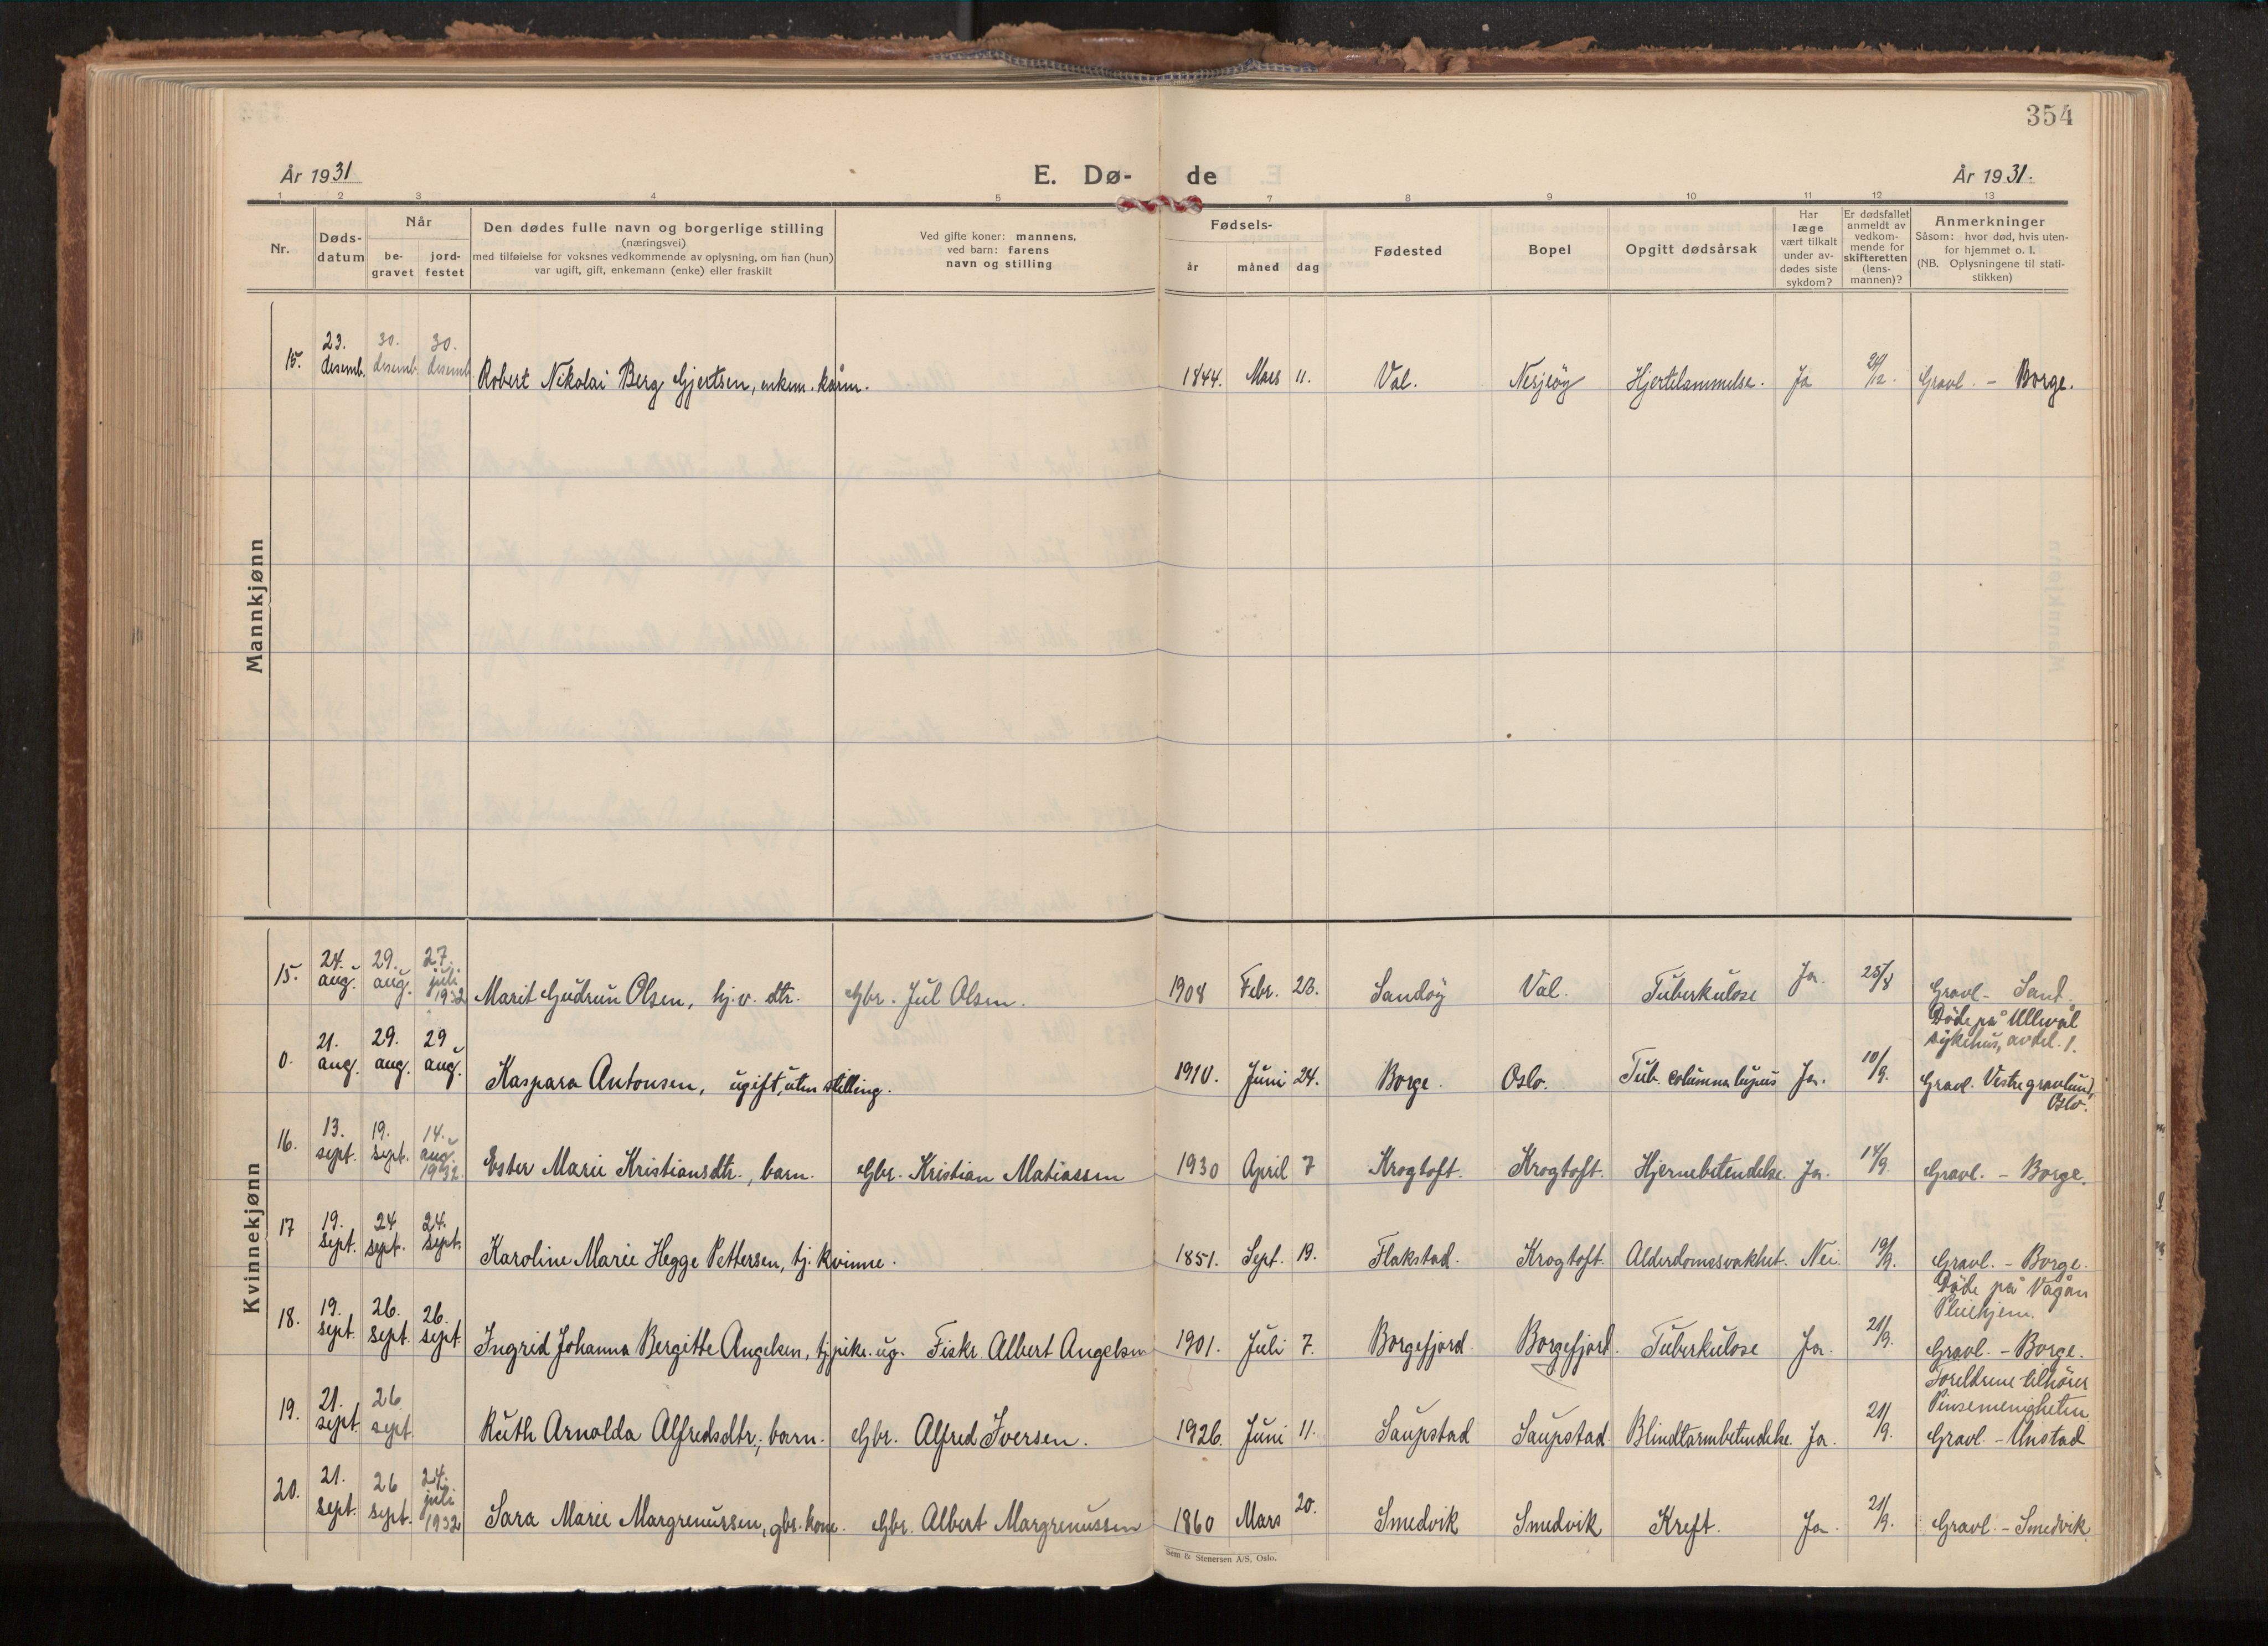 354
År 1931
E. Dø-
de
År 1931.
1 2 3 4 5 7 8 9 10 11 12 13
Nr.
Døds-
datum
Når
be-
gravet
jord-
festet
Den dødes fulle navn og borgerlige stilling
(næringsvei)
med tilføielse for voksnes vedkommende av oplysning, om han (hun)
var ugift, gift, enkemann (enke) eller fraskilt
Ved gifte koner: mannens,
ved barn: farens
navn og stilling
Fødsels-
år måned dag
Fødested
Bopel
Opgitt dødsårsak
Har
læge
vært tilkalt
under av-
dødes siste
sykdom?
Er dødsfallet
anmeldt av
vedkom-
mende for
skifteretten
(lens-
mannen)?
Anmerkninger
Såsom: hvor død, hvis uten-
for hjemmet o. l.
(NB. Oplysningene til stati-
stikken)
Mannkjønn
15. 23. desemb. 30. desemb. 30. desemb. Robert Nikolai Berg Gjertsen, enkem. kårm. 1844. Mars 11. Val. Nesjeöy Hjertelammelse. Ja /12. Gravl. - Borge.
Kvinnekjønn
15. 24. aug. 29. aug. 27. juli 1932 Marit Gudrun Olsen, hj.v. dtr. Gbr. Jul Olsen. 1908 Febr. 23. Sandöy Val. Tuberkulose Ja. 25/8 Gravl. - Sand.
Döde på Ullevål
sykehus, avdel. 1.
0. 21. aug. 29. aug. 29 aug. Kaspara Antonsen, ugift, uten stilling. 1910. Juni 24. Borge. Oslo. Tub. columna lupus Ja. 10/9. Gravl. Vestre gravlund,
Oslo.
16. 13. sept. 19. sept. 14. aug. 1932. Ester Marie Kristiansdtr., barn. Gbr. Kristian Matiassen 1930 April 7 Krogtoft. Krogtoft. Hjernebetendelse. Ja. 14/9. Gravl. - Borge.
17 19. sept. 24 sept. 24. sept. Karoline Marie Hegge Pettersen, tj. kvinne. 1851. Sept. 19. Flakstad. Krogtoft. Alderdomssvakhet. Nei. 19/9. Gravl. - Borge.
Döde på Vågan
Pleiehjem.
18. 19. sept. 26. sept. 26. sept. Ingrid Johanna Bergitte Angelsen, tjpike. ug. Fiskr. Albert Angelsen 1901. Juli 7. Borgefjord. Borgefjord. Tuberkulose Ja. 21/9. Gravl. - Borge.
Foreldrene tilhörer
Pinsemenigheten.
19. 21. sept. 26 sept. Ruth Arnolda Alfredsdtr., barn. Gbr. Alfred Iversen. 1926. Juni 11. Saupstad Saupstad Blindtarmbetendelse. Ja. 21/9. Gravl. - Unstad
20. 21. sept. 26 sept. 24. juli 1932 Sara Marie Margrenussen, gbr. kone. Gbr. Albert Margrenussen 1860 Mars 20. Smedvik Smedvik Kreft. Ja. 21/9. Gravl. - Smedvik.
Sem & Stenersen A/S, Oslo.